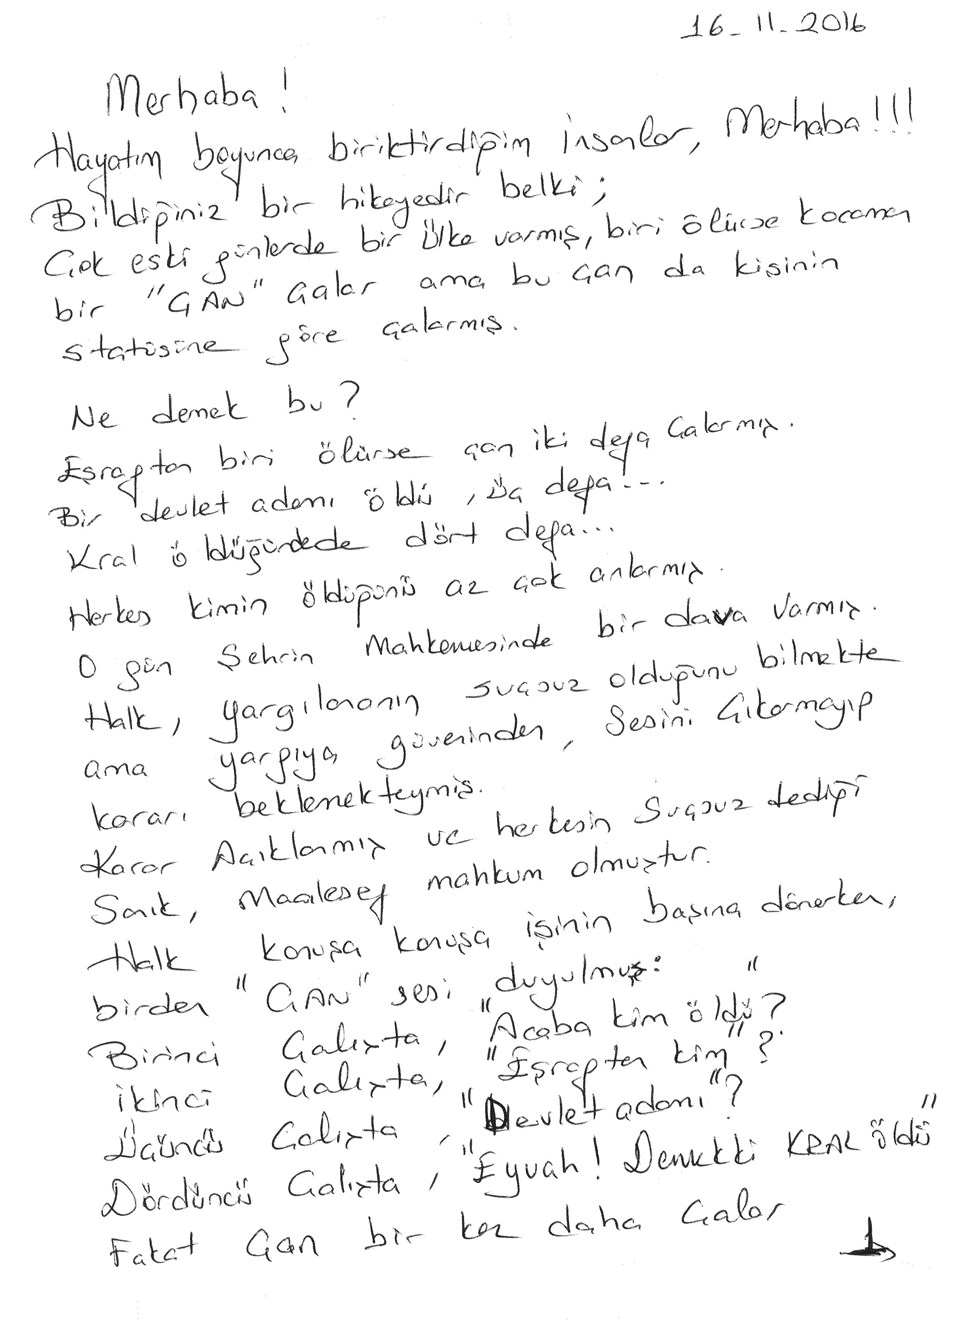 16-11-2016
Merhaba!
Hayatım boyunca biriktirdiğim insanlar, Merhaba!!!
Bildiğiniz bir hikayedir belki;
Çok eski günlerde bir ülke varmış, biri ölürse kocaman
bir "ÇAN" çalar ama bu çan da kişinin
statüsüne göre çalarmış.
Ne demek bu?
Eşraftan biri ölürse çan iki defa çalarmış.
Bir devlet adamı öldü, üç defa...
Kral öldüğündede dört defa...
Herkes kimin öldüğünü az çok anlarmış.
O gün Şehrin Mahkemesinde bir dava varmış.
Halk, yargılananın suçsuz olduğunu bilmekte
ama yargıya güveninden, sesini çıkarmayıp
kararı beklemekteymiş.
Karar Açıklanmış ve herkesin suçsuz dediği
Sanık, Maalesef mahkum olmuştur.
Halk konuşa konuşa işinin başına dönerken,
birden "ÇAN" sesi duyulmuş:
Birinci Çalışta, "Acaba kim öldü?"
İkinci Çalışta, "Eşraftan kim"?
Üçüncü Çalışta, "Devlet adamı"?
Dördüncü Çalışta, "Eyvah! Demekki KRAL öldü"
Fakat Çan bir kez daha Çalar
1